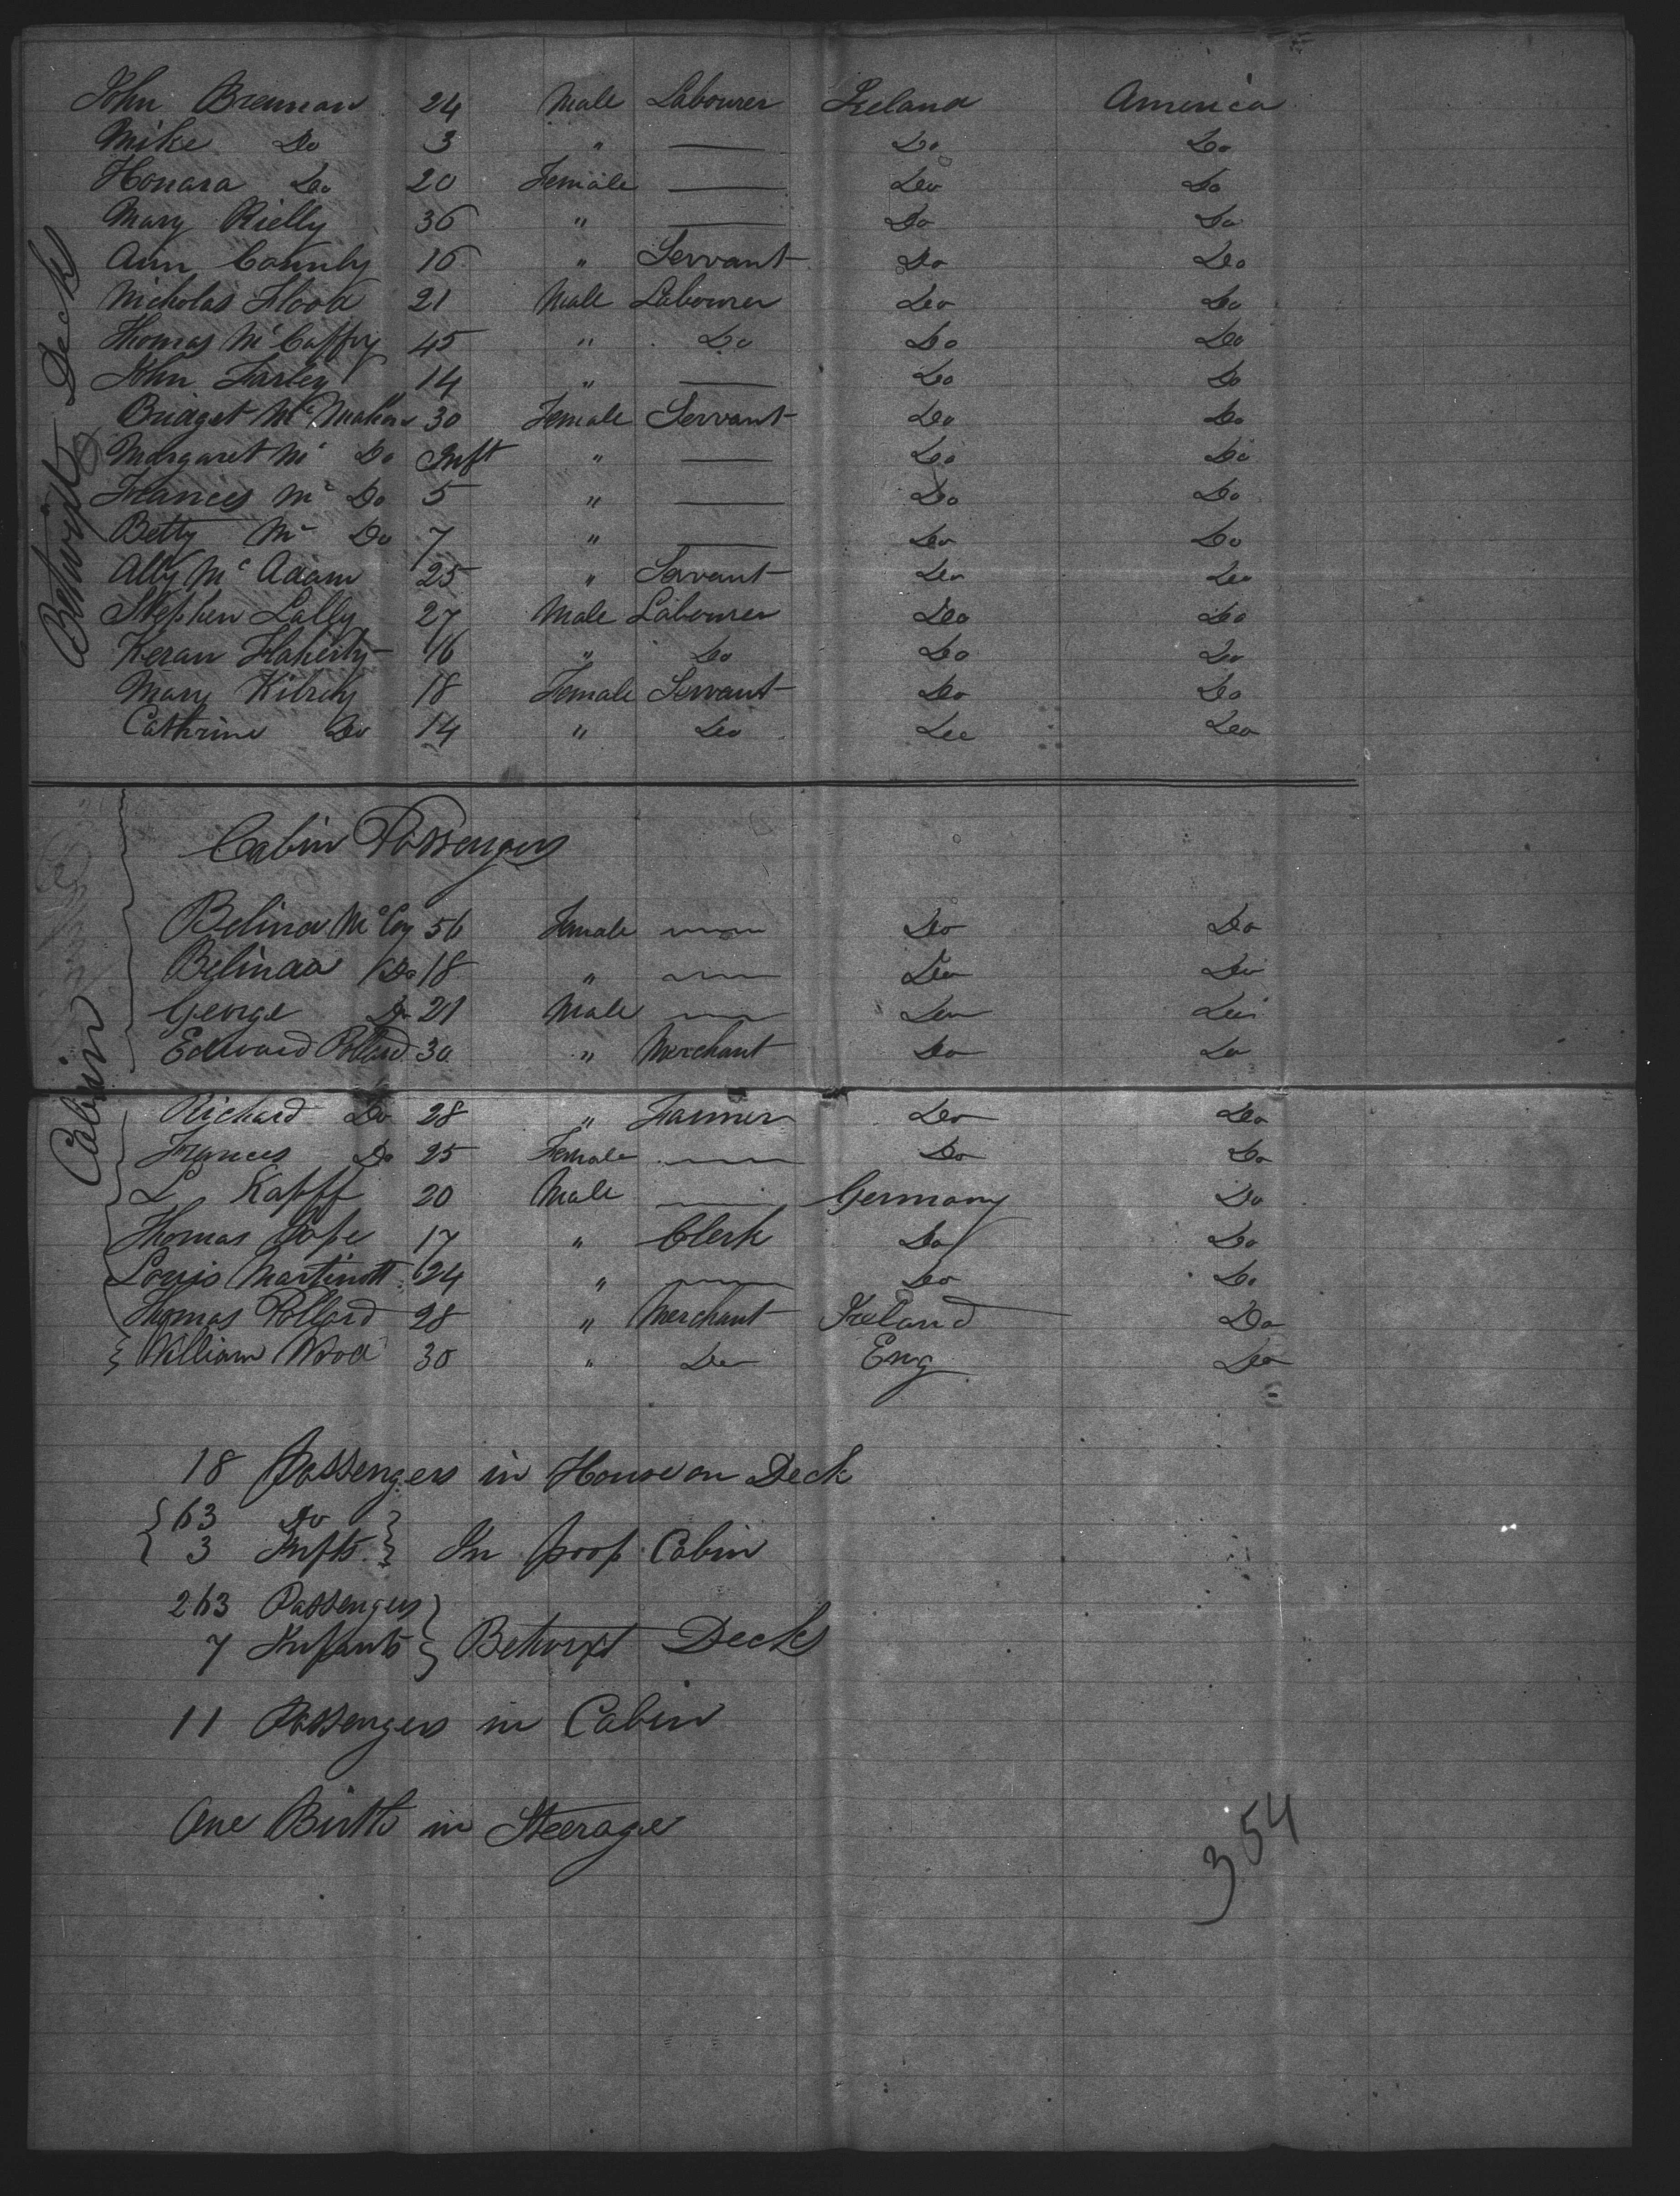 John Brennan 24 Male Labourer Ireland America
Mike Do 3 " — Do Do
Honara Do 20 Female — Do Do
Mary Rielly 36 " — Do Do
Ann Connly 16 " Servant Do Do
Nicholas Flood 21 Male Labourer Do Do
Thomas McCaffry 45 " Do Do Do
John Farley 14 " — Do Do
Bridget McMahon 30 Female Servant Do Do
Margaret Mc Do Inft " — Do Do
Frances Mc Do 5 " — Do Do
Betty Mc Do 7 " — Do Do
Ally McAdam 25 " Servant Do Do
Stephen Lally 27 Male Labourer Do Do
Keran Flaherty 16 " Do Do Do
Mary Kilrely 18 Female Servant Do Do
Cathrine Do 14 " Do Do Do
Betwixt Decks
Cabin Passengers
Belina McCoy 56 Female — Do Do
Belinda Do 18 " — Do Do
George Do 21 Male — Do Do
Edward Pollard 30 " Merchant Do Do
Richard Do 28 " Farmer Do Do
Frances Do 25 Female — Do Do
L Kapff 20 Male — Germany Do
Thomas 17 " Clerk Do Do
Louis Martinott 24 " — Do Do
Thomas Pollard 28 " Merchant Ireland Do
William Wood 30 " Do Eng Do
Cabin
18 Passengers in House on Deck
63 Do
3 Infts } In poop Cabin
263 Passengers
7 Infants } Betwixt Decks
11 Passengers in Cabin
One Birth in Steerage
354